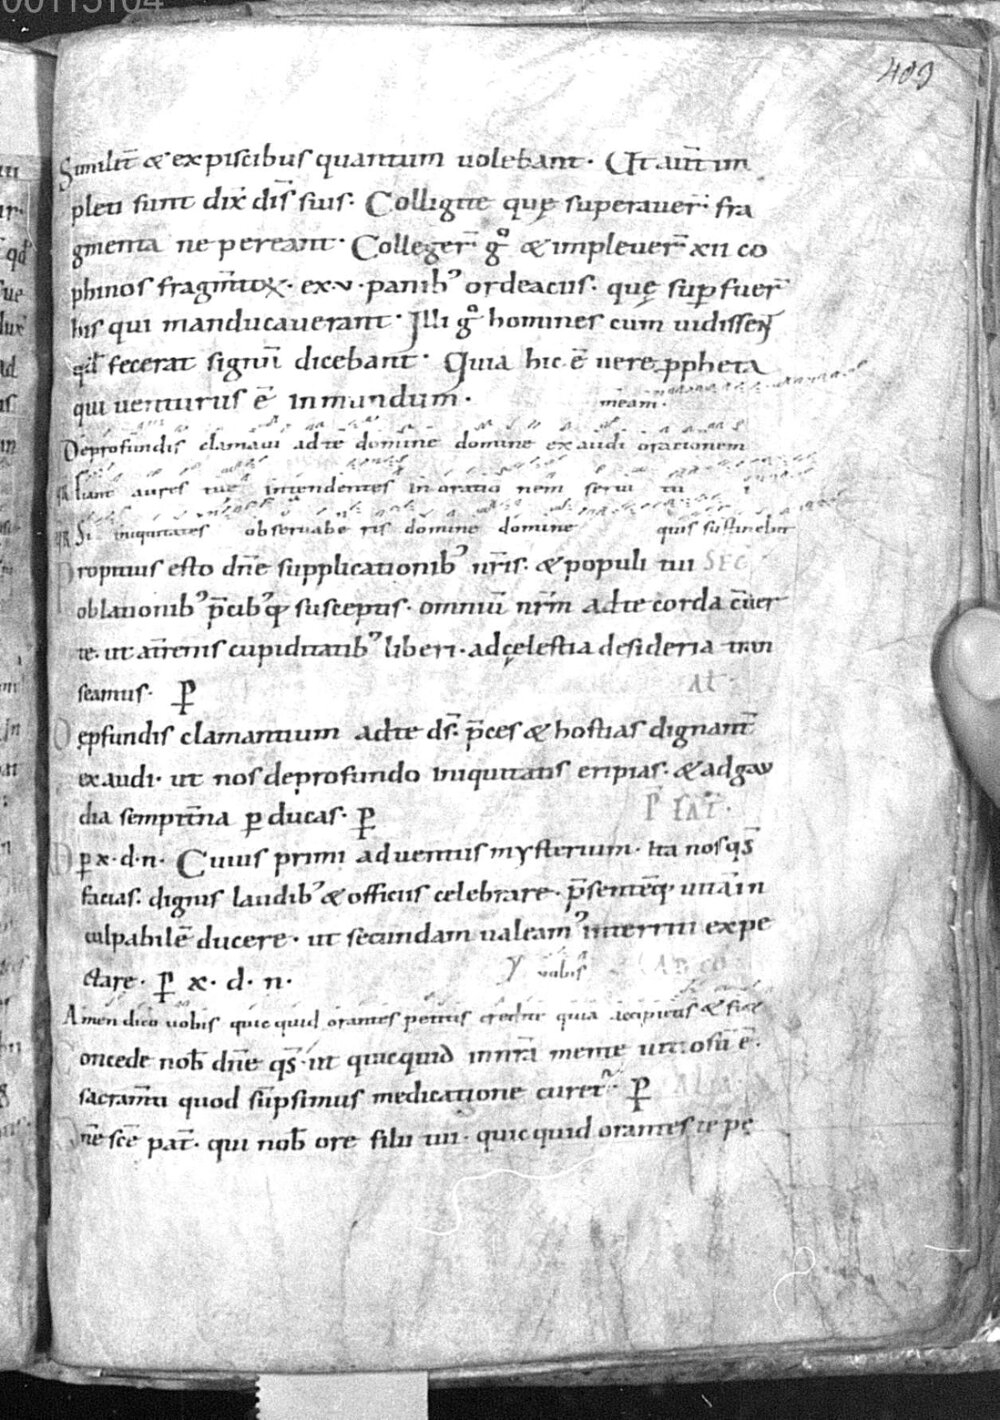 00115104
409
Similit̄ & ex piscibus quantum uolebant· Ut aut̄ im
pleti sunt dix̄ dis̄ suis· Colligite quę superauer̄ fra
gmenta ne pereant· Colleger̄ gͦ & impleuer̄ xii co
phinos fragm̄toꝝ· ex·v·panib᾽ ordeaciis· quę suꝑfuer̄
his qui manducauerant· Illi gͦ homines cum uidissent
qd̄ fecerat signū dicebant· Quia hic ē uere ꝓpheta
qui uenturus ē in mundum·
meam·
De profundis clamaui ad te domine domine exaudi orationem
Fiant aures tuę intendentes in oratio nem serui tu i
Si iniquitates obseruabe ris domine domine quis sustinebit
Propitius esto dn̄e supplicationib᾽ nr̄is· & populi tui SEC
oblationib᾽ p̄cib᾽q susceptis· omniū nr̄m ad te corda c̄uer
te· ut a terrenis cupiditatib᾽ liberi· ad cęlestia desideria tran
seamus· P
AL
De ꝓfundis clamantium ad te ds̄· p̄ces & hostias dignant̄
exaudi· ut nos de profundo iniquitatis eripias· & ad gau
dia sempit̄na ꝑducas· P
P̄FAT̄·
ꝑ x·d·n· Cuius primi aduentus mysterium· ita nos qs̄
facias· dignis laudib᾽ & officiis celebrare· p̄sentēq uitā in
culpabilē ducere· ut secundam ualeam᾽ interriti expe
ctare· P x· d· n·
uobis
CO
Amen dico uobis quicquid orantes petitis credite quia accipietis & fiet
Concede nob̄ dn̄e qs̄· ut quicquid in nr̄a mente uitiosū ē·
sacram̄ti quod sūpsimus medicatione curet̄· P
ALIA·
Dn̄e sc̄e pat̄· qui nob̄ ore filii tui· quicquid orantes te pe